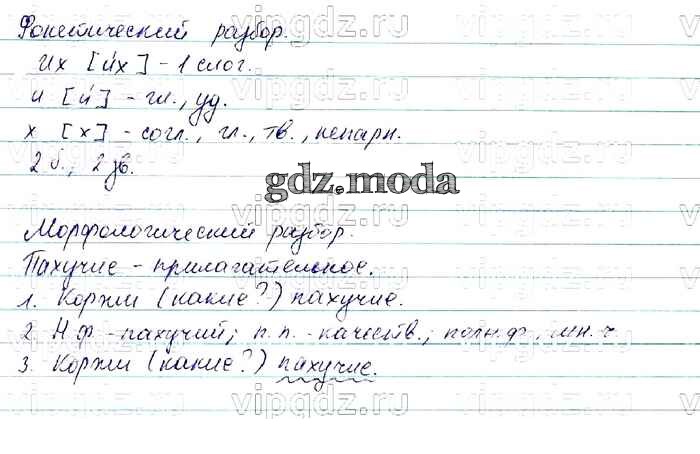 Фонетический разбор.
Их [и́х] - 1 слог.
и [и́] - гл., уд.
х [х] - согл., гл., тв., непарн.
2 б., 2 зв.
gdz.moda
Морфологический разбор.
Пахучие - прилагательное.
1. Коржи (какие?) пахучие.
2. Н.ф. - пахучий; п.п. - качеств.; полн.ф., мн.ч.
3. Коржи (какие?) пахучие.
vipgdz.ru